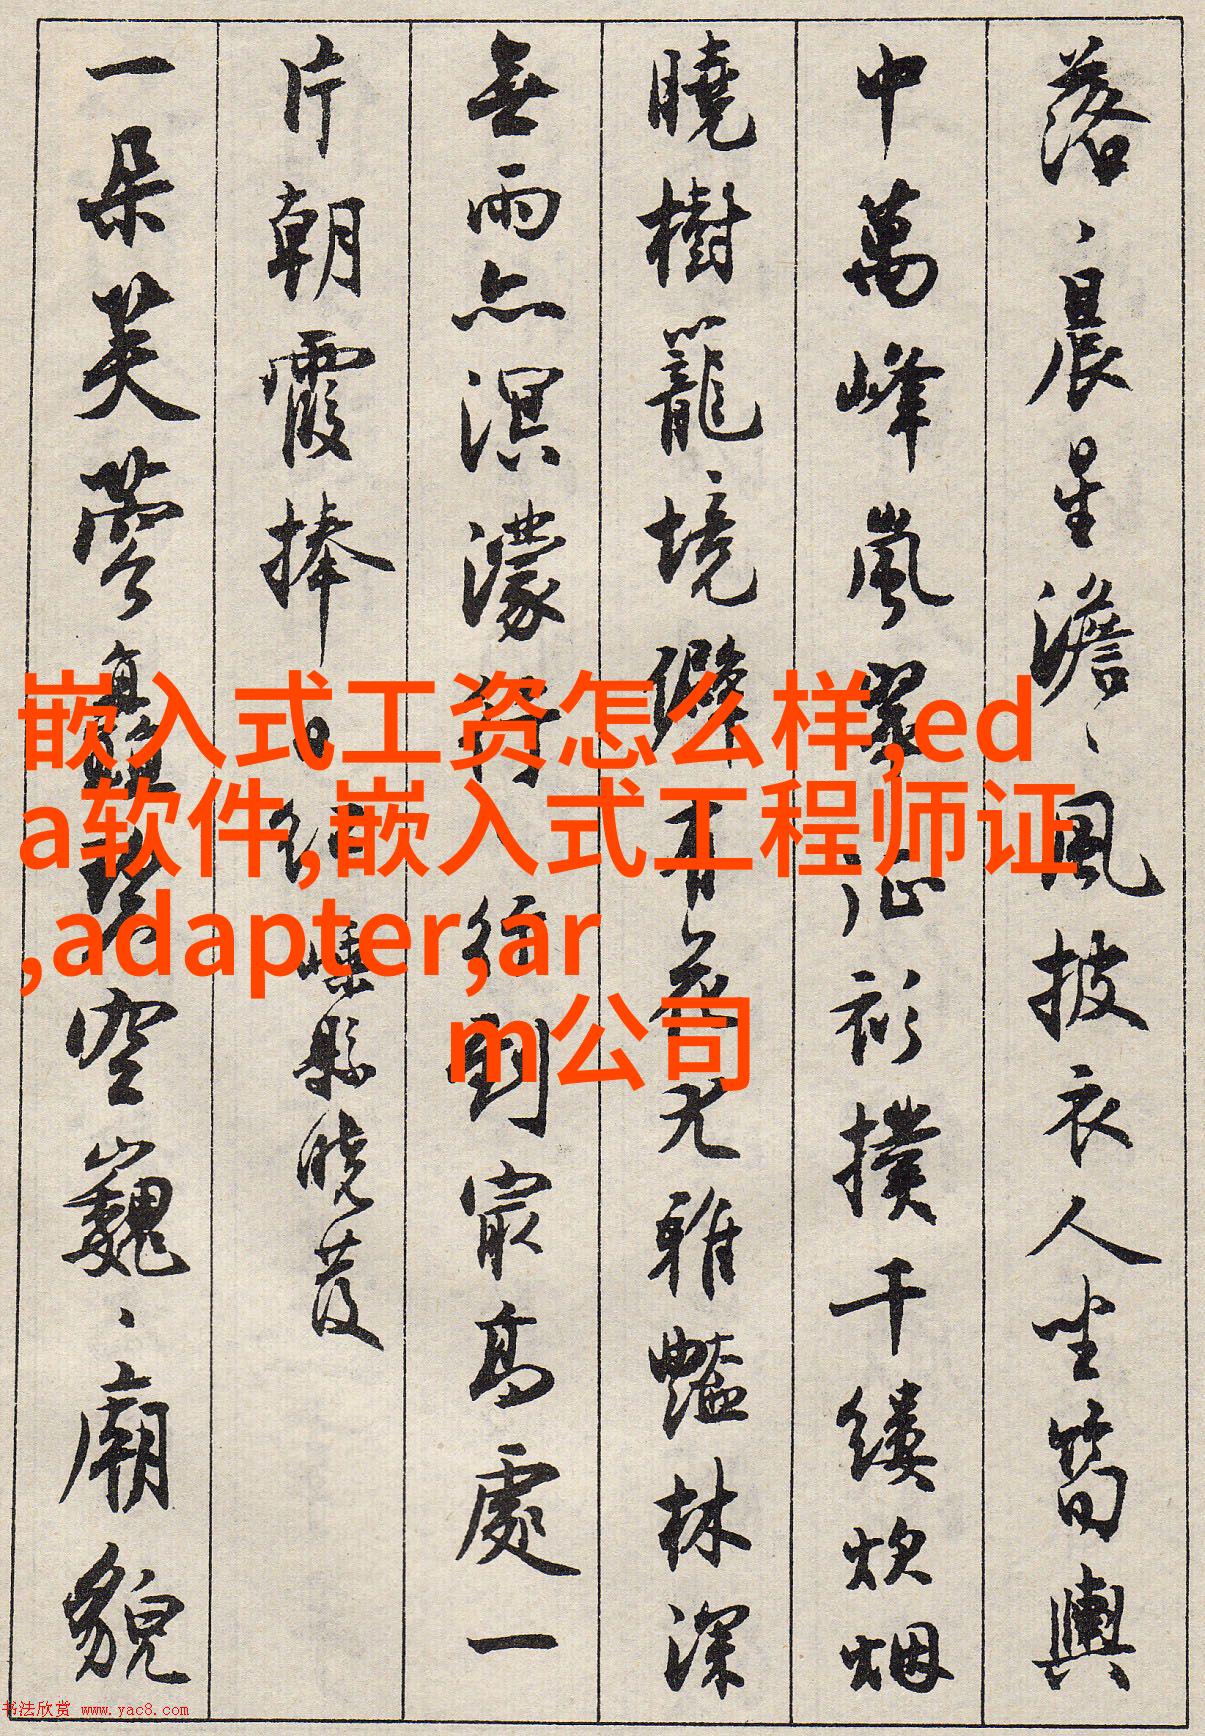 落、晨星澹、風披衣人坐筍輿
中萬峰嵐翠征衫撲千縷炊烟
曉樹籠境僻有花尤雅豔林深
無雨亦溟濛行、行到最高處一
片朝霞捧日紅 嵊縣曉發
一朵芙蓉矗碧空巍、廟貌
嵌入式工资怎么样,ed
a软件,嵌入式工程师证
,adapter,ar
m公司
书法欣赏 www.yac8.com